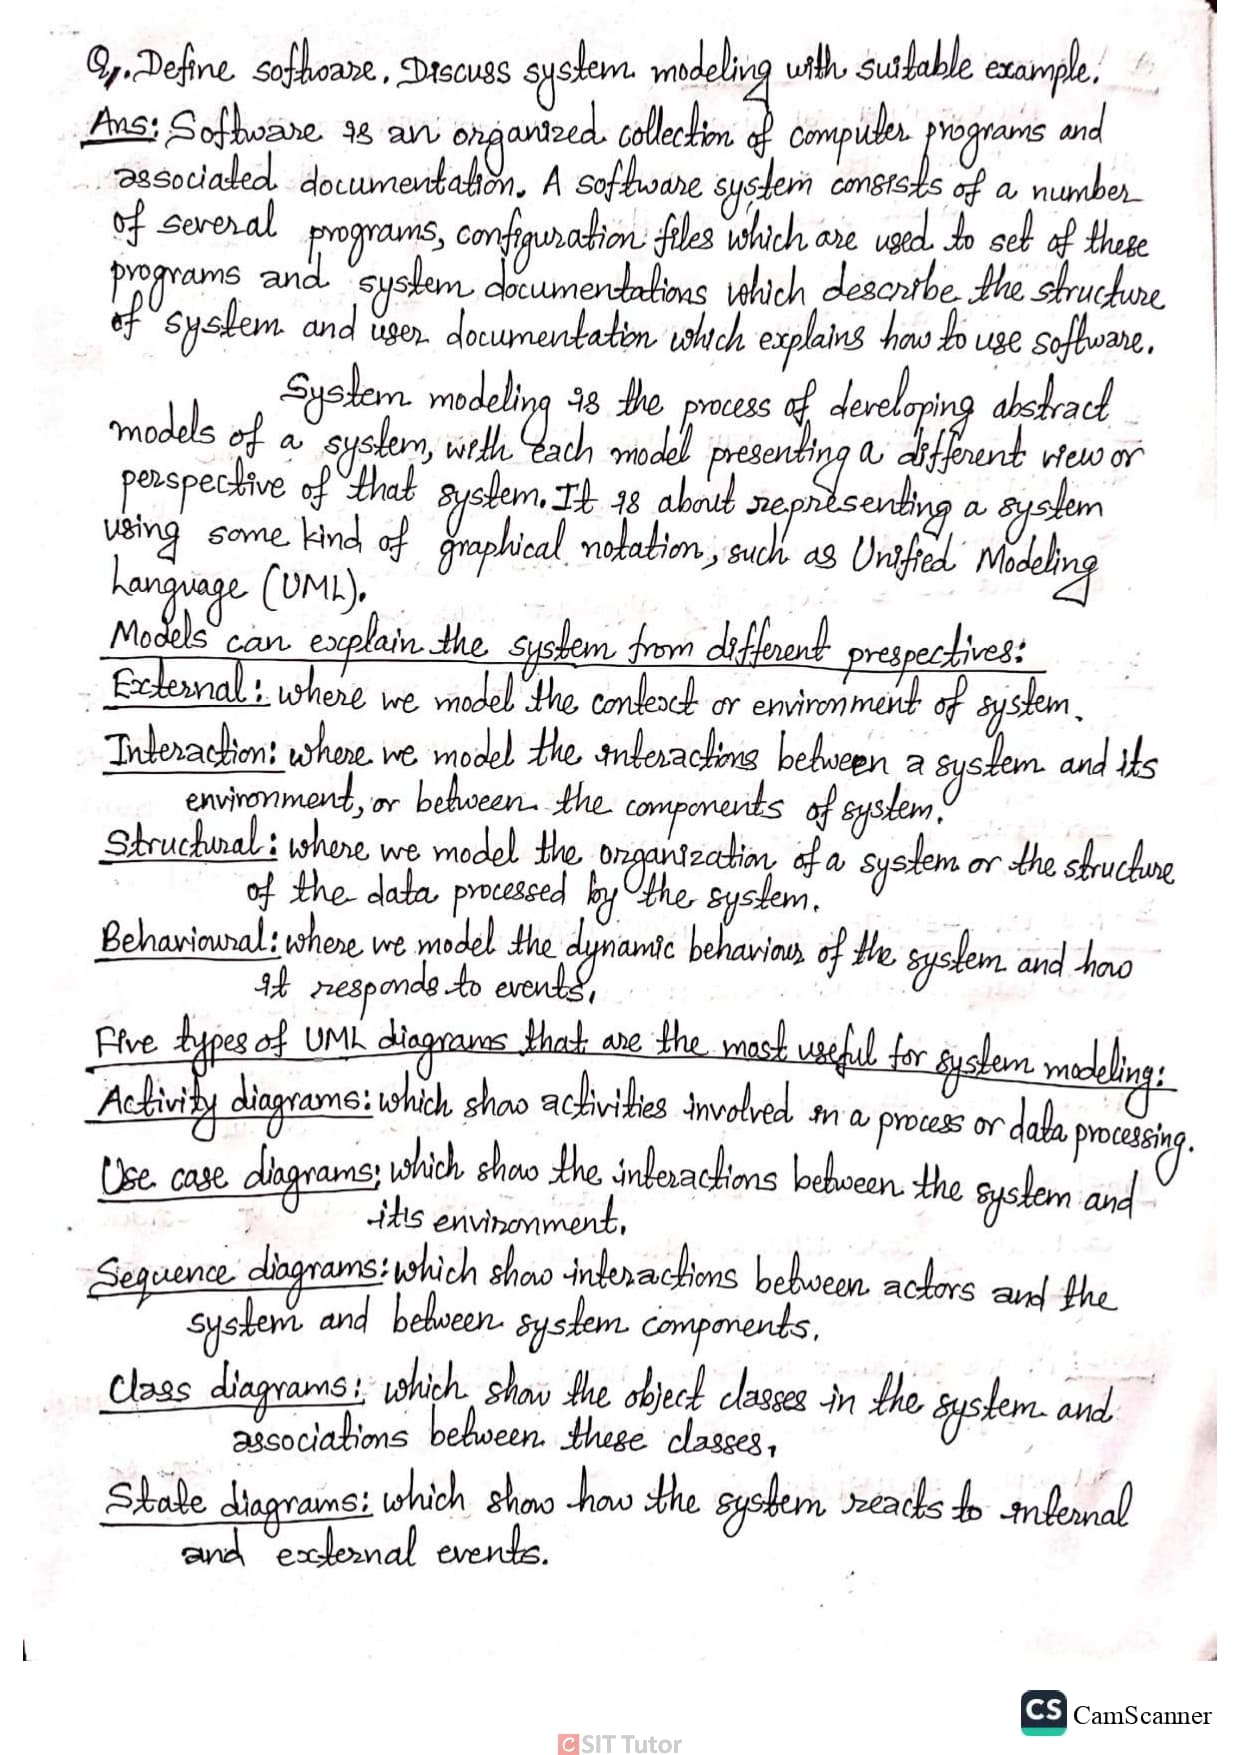 Q1. Define software. Discuss system modeling with suitable example.
Ans: Software is an organized collection of computer programs and
associated documentation. A software system consists of a number
of several programs, configuration files which are used to set of these
programs and system documentations which describe the structure
of system and user documentation which explains how to use software.
System modeling is the process of developing abstract
models of a system, with each model presenting a different view or
perspective of that system. It is about representing a system
using some kind of graphical notation, such as Unified Modeling
Language (UML).
Models can explain the system from different prespectives:
External: where we model the context or environment of system.
Interaction: where we model the interactions between a system and its
environment, or between the components of system.
Structural: where we model the organization of a system or the structure
of the data processed by the system.
Behavioural: where we model the dynamic behaviour of the system and how
it responds to events.
Five types of UML diagrams that are the most useful for system modeling:
Activity diagrams: which show activities involved in a process or data processing.
Use case diagrams: which show the interactions between the system and
its environment.
Sequence diagrams: which show interactions between actors and the
system and between system components.
Class diagrams: which show the object classes in the system and
associations between these classes.
State diagrams: which show how the system reacts to internal
and external events.
CS CamScanner
CSIT Tutor